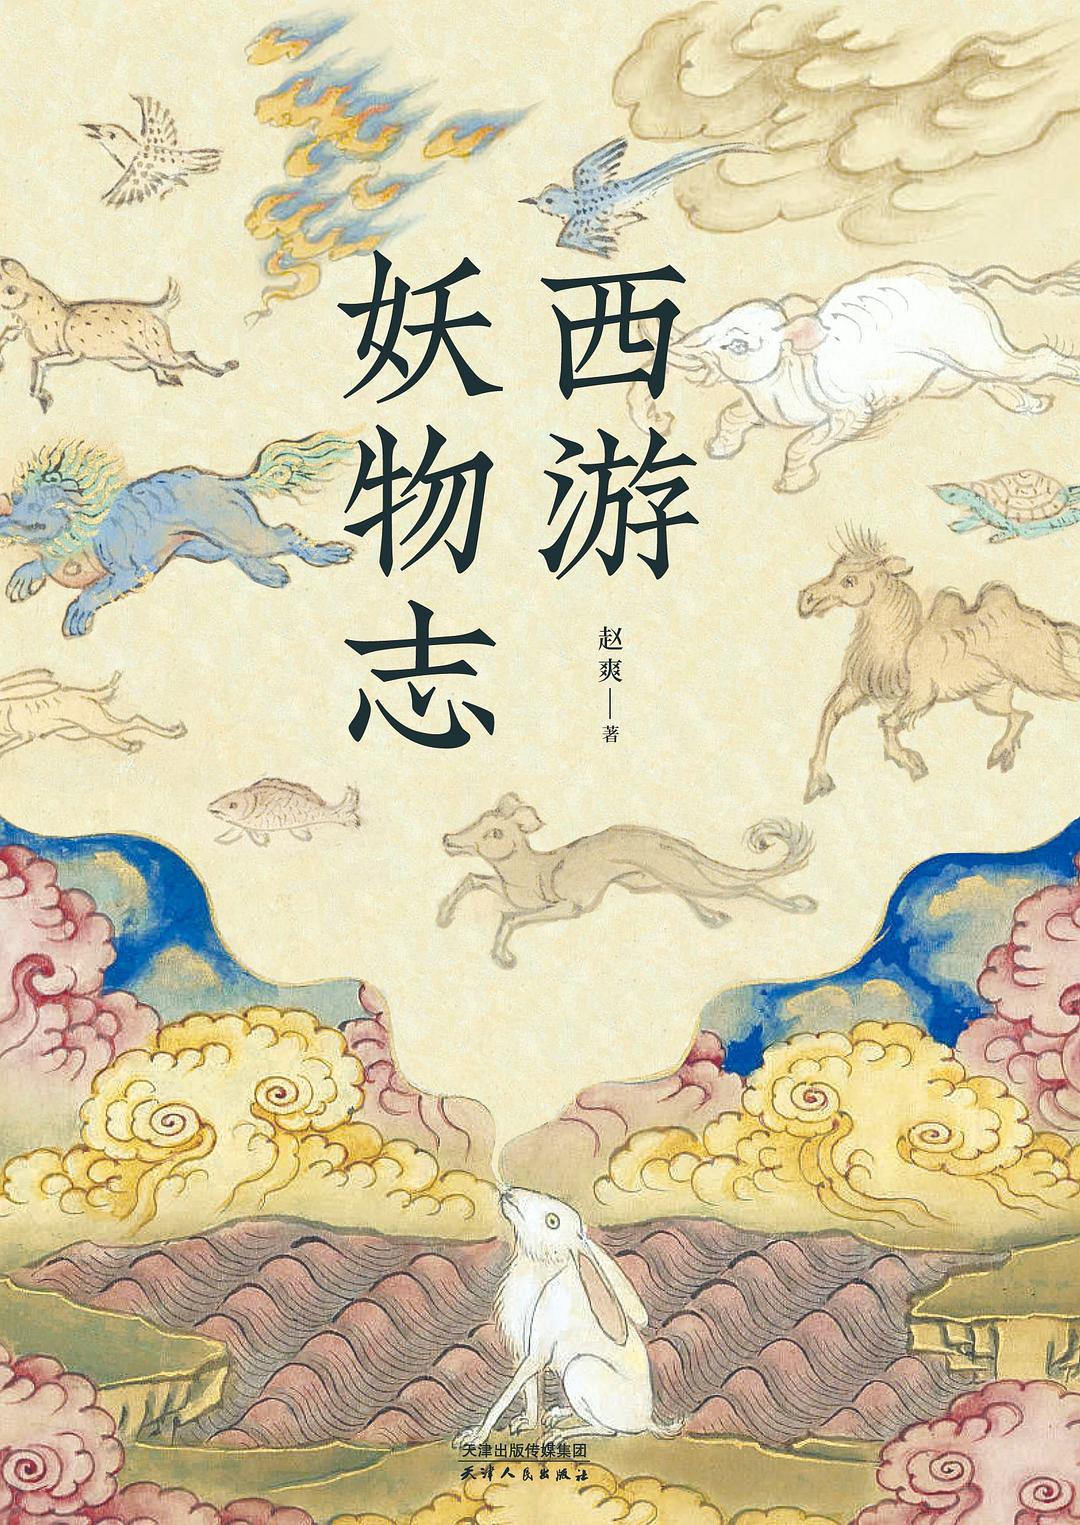 西游
妖物志
赵爽—著
天津出版传媒集团
天津人民出版社